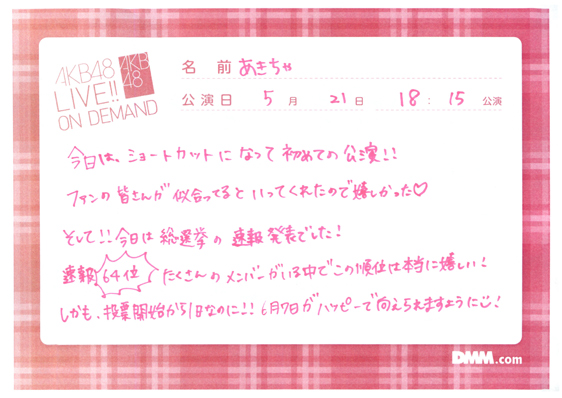 AKB48
LIVE!!
ON DEMAND
AKB
48
名 前 あきちゃ
公演日 5月 21日 18:15 公演
今日は、ショートカットになって初めての公演!!
ファンの皆さんが似合ってるといってくれたので嬉しかった♡
そして!!今日は総選挙の速報発表でした!
速報 64位 たくさんのメンバーがいる中でこの順位は本当に嬉しい!
しかも、投票開始から1日なのに!! 6月7日がハッピーで向えられますように☺!
DMM.com